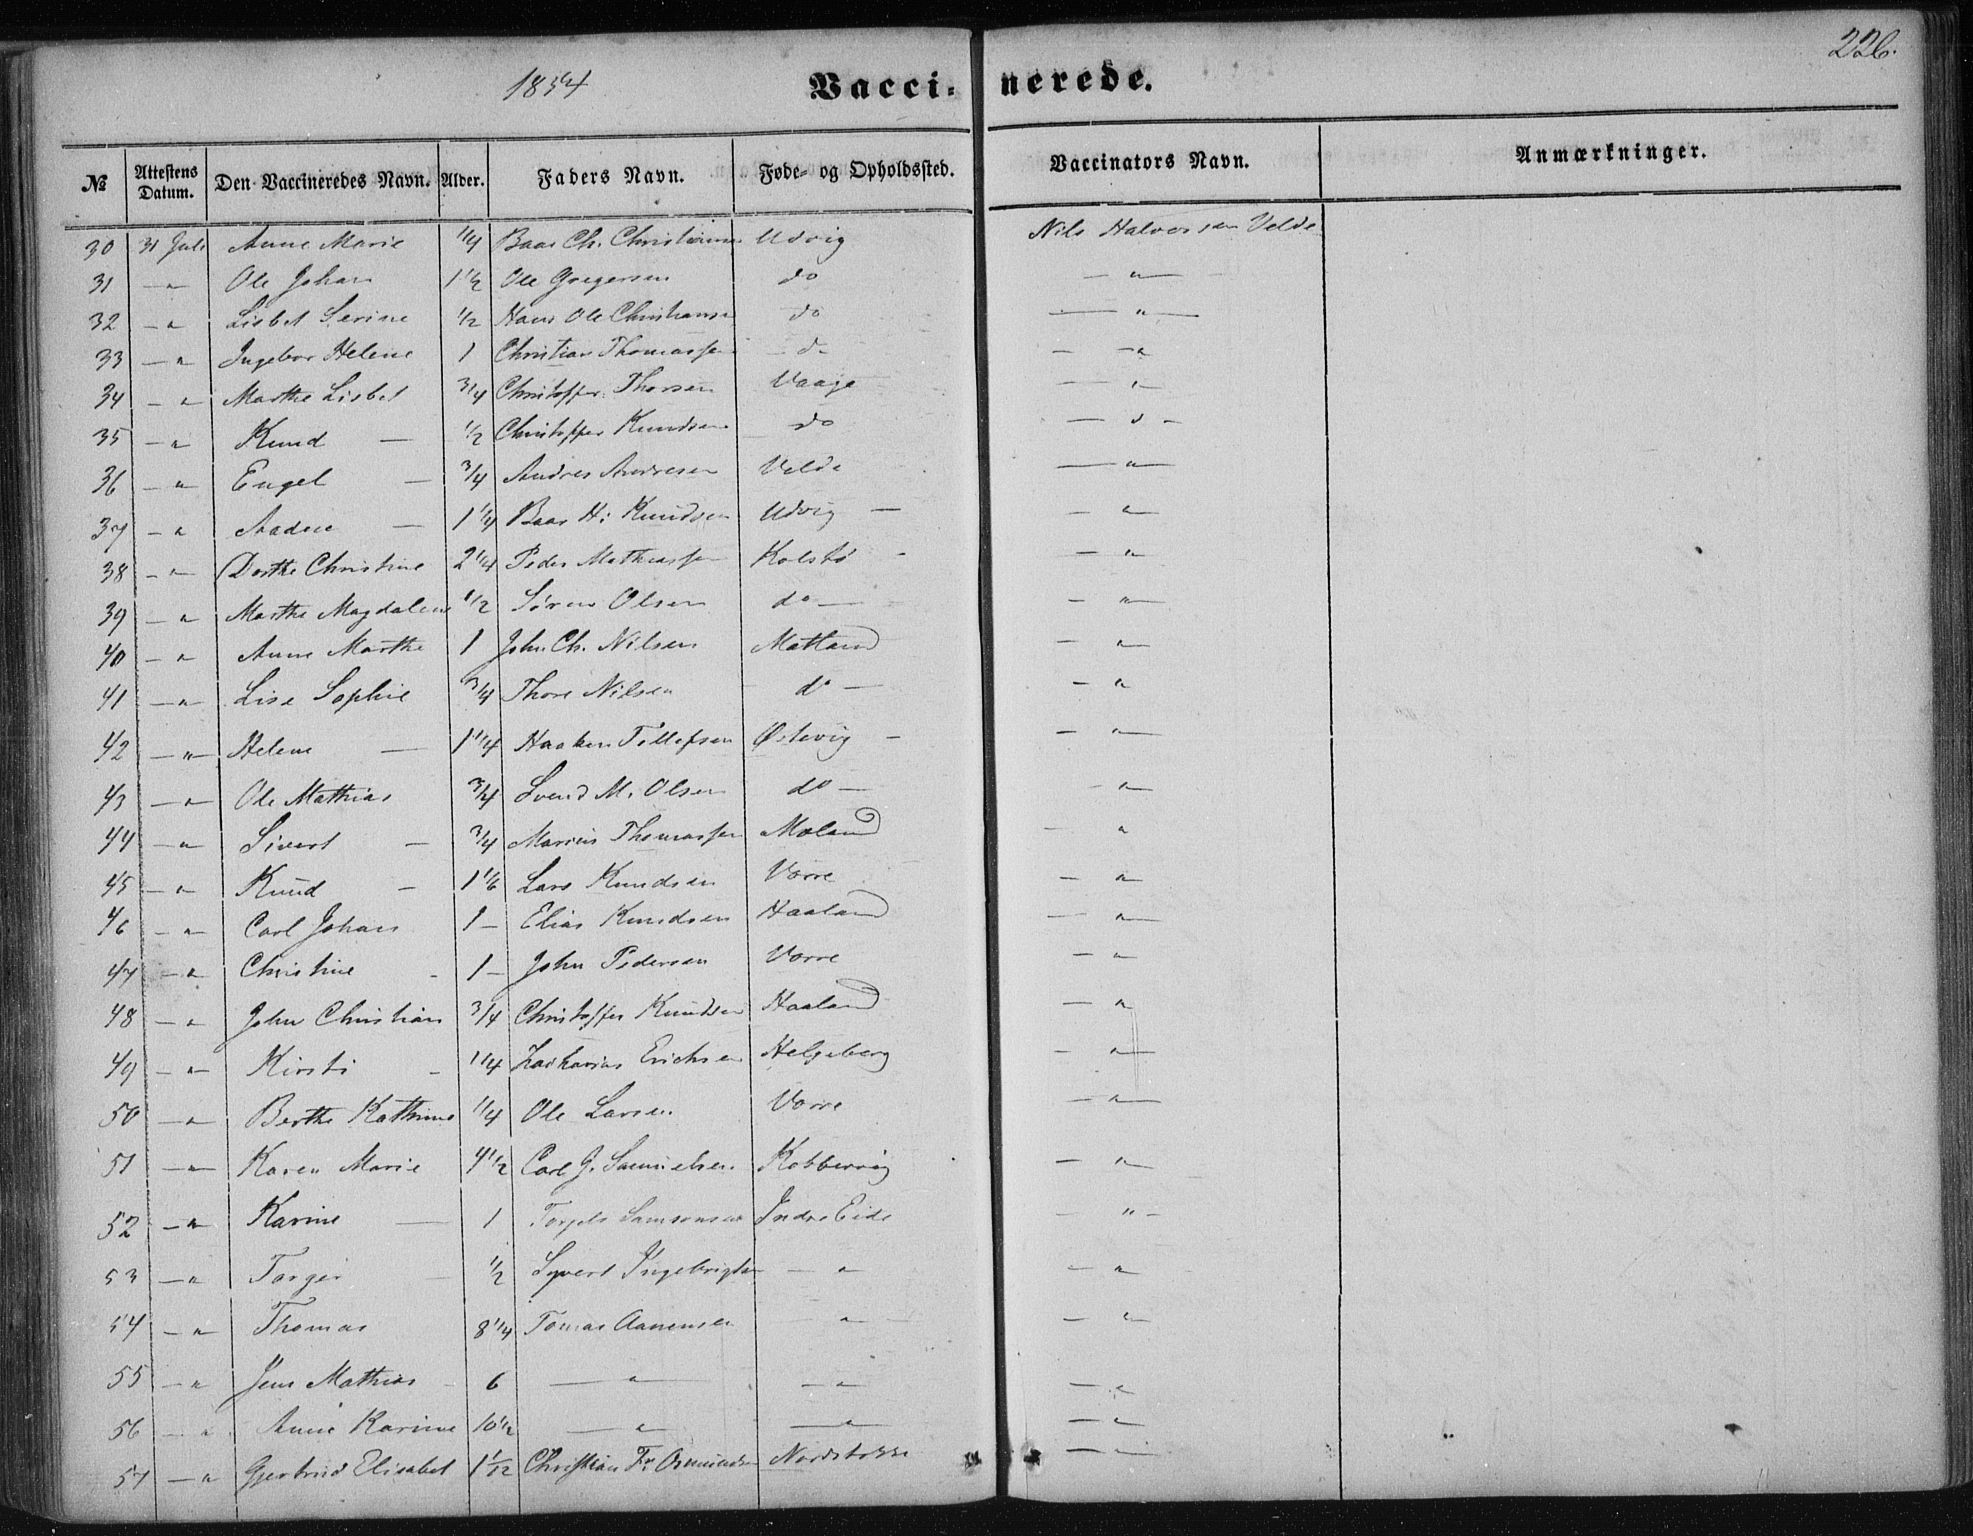 1854 Vaccinerede. 226.
№ Attestens Datum. Den Vaccineredes Navn. Alder. Faders Navn. Føde- og Opholdssted. Vaccinators Navn. Anmærkninger.
30 31 Juli Anne Marie 1/4 Baar Ch. Christiansen Udvig Nils Halvorsen Velde
31 — " Ole Johan 1 1/2 Ole Gregersen do — " —
32 — " Lisbet Serine 1/2 Hans Ole Christiansen do — " —
33 — " Ingebor Helene 1 Christian Thomassen do — "
34 — " Marthe Lisbet 3/4 Christoffer Thorsen Vaage — "
35 — " Knud — 1/2 Christoffer Knudsen do — " —
36 — " Engel — 3/4 Andres Andresen Velde — " —
37 — " Aadne — 1 1/4 Baar H: Knudsen Udvig — — " —
38 — " Dorthe Christine 2 1/4 Peder Mathiassen Kolstø — " —
39 — " Marthe Magdalene 1/2 Søren Olsen do — — " —
40 — " Anne Marthe 1 John Ch. Nilsen Matland — " —
41 — " Lise Sophie 3/4 Thore Nilsen do — — "
42 — " Helene — 1 1/4 Haaken Tollefsen Østevig — — " —
43 — " Ole Mathias 3/4 Svend M. Olsen do — — " —
44 — " Sivert — 3/4 Marius Thomassen Moland — "
45 — " Knud — 1 1/6 Lars Knudsen Vorre — " —
46 — " Carl Johan 1 — Elias Knudsen Haaland — " —
47 — " Christine 1 — John Pedersen Vorre — "
48 — " John Christian 3/4 Christoffer Knudsen Haaland — "
49 — " Kirsti 1 1/4 Zacharias Erichsen Helgeberg — " —
50 — " Berthe Kathrine 1/4 Ole Larsen Vorre — " —
51 — " Karen Marie 4 1/2 Carl G. Samuelsen Kobbervig — " —
52 — " Karine — 1 Torgels Samsonsen Indre Eide — " —
53 — " Torger 1/2 Syvert Ingebrigtsen — " — "
54 — " Thomas 8 1/4 Tomas Aanensen — " — " —
55 — " Jens Mathias 6 — " — — " — — "
56 — " Anne Karine 10 1/2 — " — — " — — "
57 — " Gjertrud Elisabet 1 1/12 Christian Fr. Osmundsen Nordstokke — "